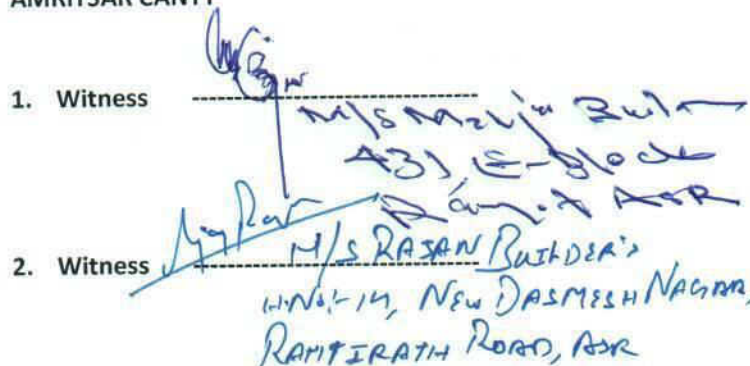 AMRITSAR CANTT
1. Witness
M/S
431, E-Block
ASR
2. Witness
M/S RAJAN BUILDER'S
H.NO:-14, NEW DASMESH NAGAR,
RAMTIRATH ROAD, ASR